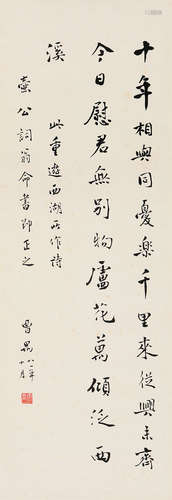 十年相與同憂樂千里來從興未齊
今日慰君無別物蘆花萬頃泛西
溪
此重遊西湖所作詩
壺公詞翁命書即正之